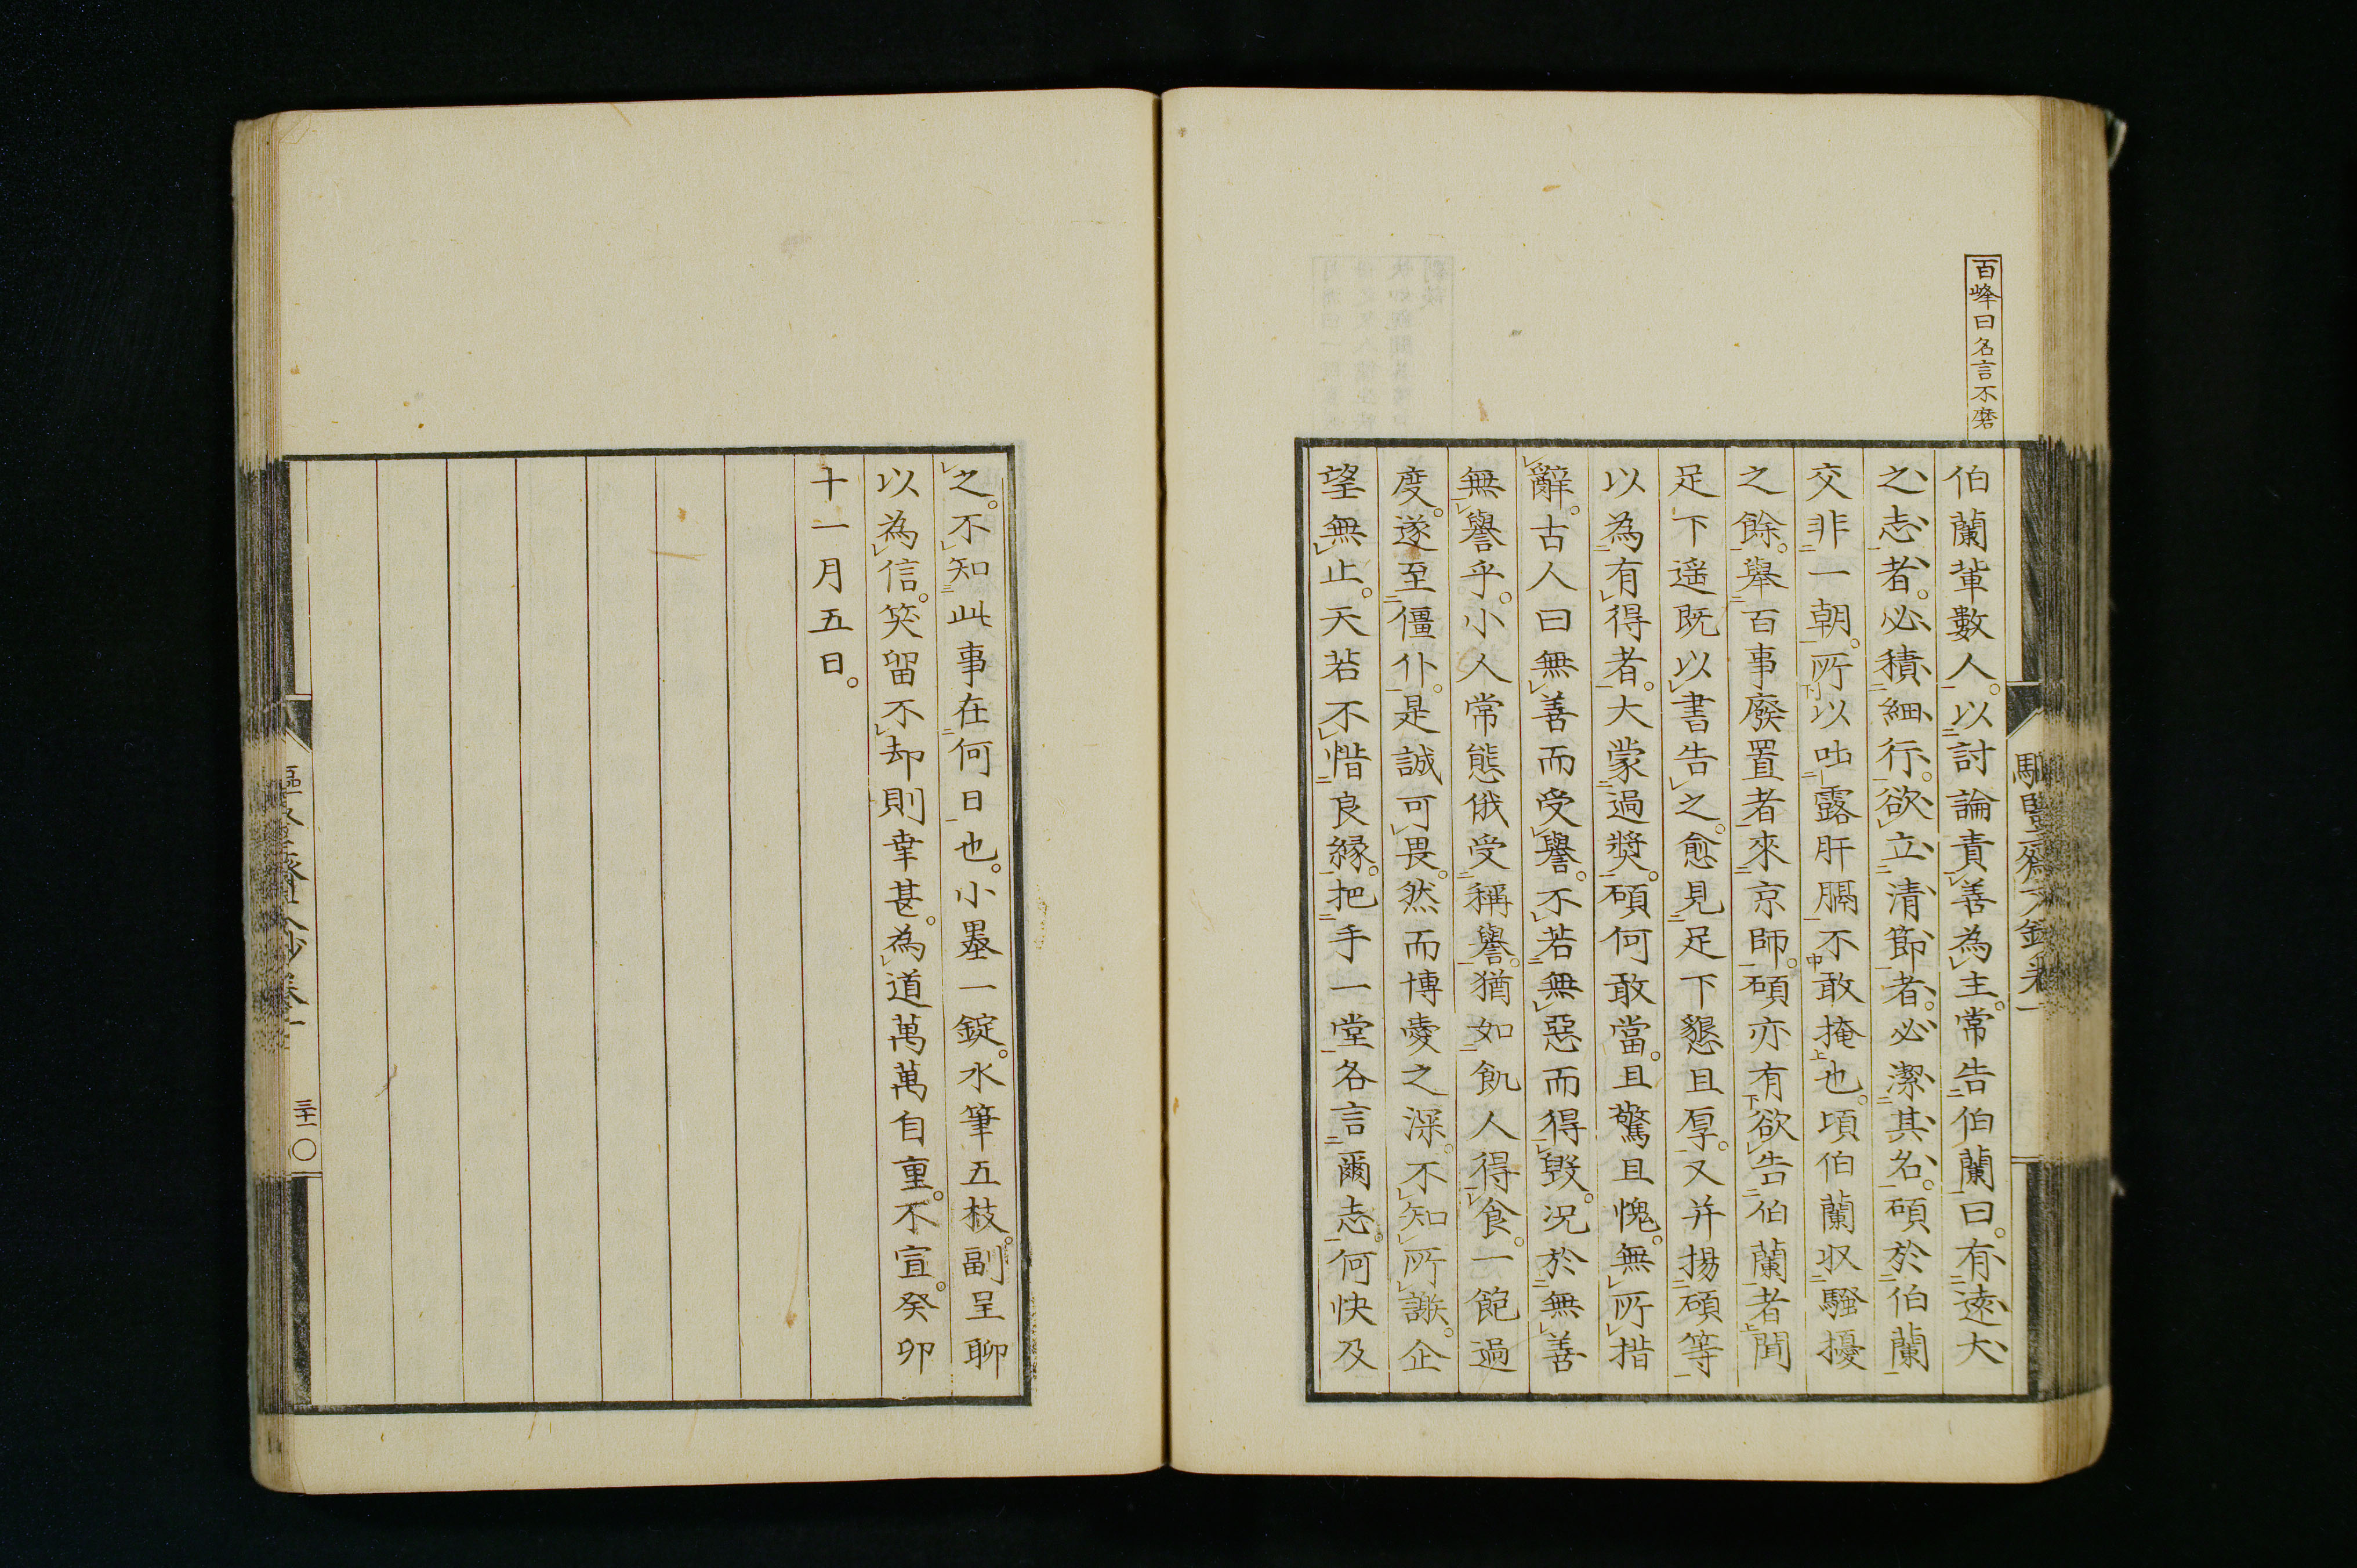 百峰曰名言不磨
伯蘭輩數人。以討論責善為主。常告伯蘭曰。有遠大
之志者。必積細行。欲立清節者。必潔其名。碩於伯蘭
交非一朝。所以吐露肝膈不敢掩也。頃伯蘭収騷擾
之餘。舉百事廢置者來京師。碩亦有欲告伯蘭者聞
足下遥既以書告之。愈見足下懇且厚。又并揚碩等
以為有得者。大蒙過奬。碩何敢當。且驚且愧。無所措
辭。古人曰無善而受譽。不若無惡而得毀。況於無善
無譽乎。小人常態俄受稱譽。猶如飢人得食。一飽過
度。遂至僵仆。是誠可畏。然而博愛之深。不知所謝。企
望無止。天若不惜良緣。把手一堂各言爾志。何快及
之。不知此事在何日也。小墨一錠。水筆五枝。副呈聊
以為信。笑留不却則幸甚。為道萬萬自重。不宣。癸卯
十一月五日。
三十一